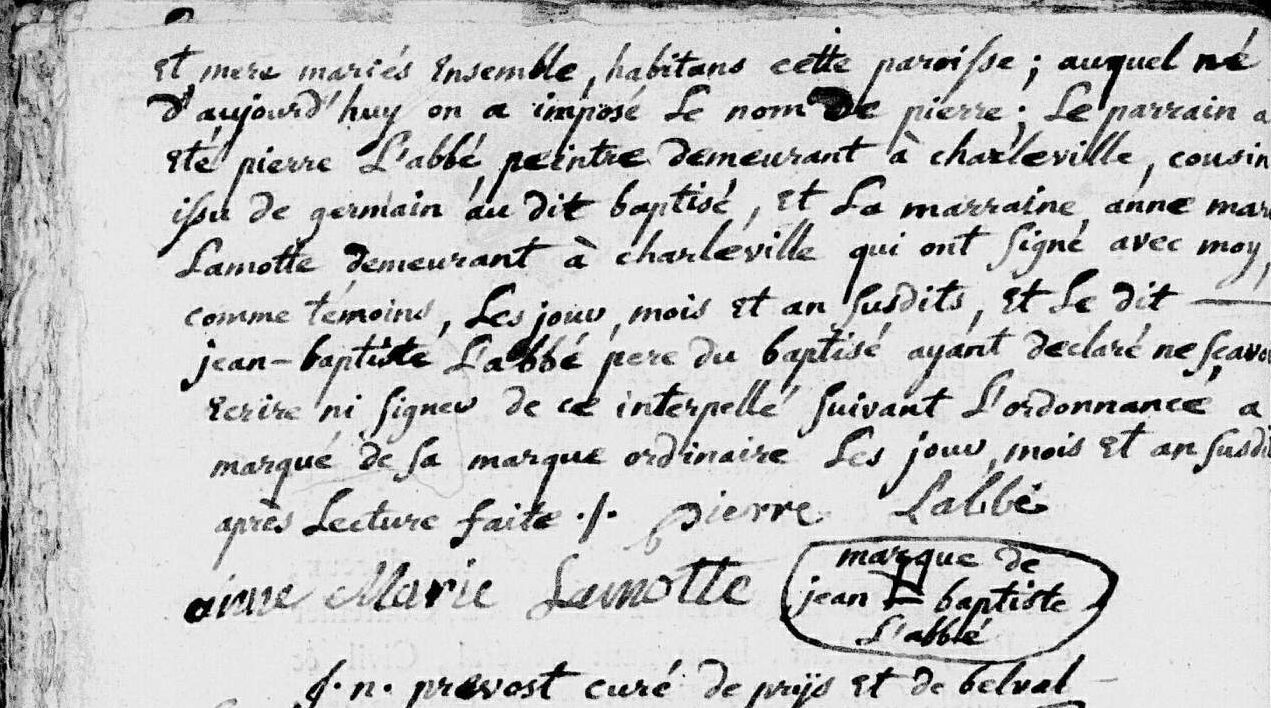 Et mere mariés Ensemble, habitans cette paroisse ; auquel né
d'aujourd'huy on a imposé Le nom De pierre ; Le parrain a
Eté pierre L'abbé peintre demeurant à charleville, cousin
issu de germain au dit baptisé, Et La marraine anne mari
Lamotte demeurant à charleville qui ont signé avec moy,
comme témoins, Les jour, mois Et an susdits, Et Le dit
jean-baptiste L'abbé pere du baptisé ayant declaré ne sçavoi
Ecrire ni signer de ce interpellé suivant L'ordonnance a
marqué de sa marque ordinaire Les jour, mois Et an susdi
après Lecture faite ./. pierre Labbé
anne Marie Lamotte
marque de
jean baptiste
L'abbé
J. n. prevost curé de prijs Et de belval